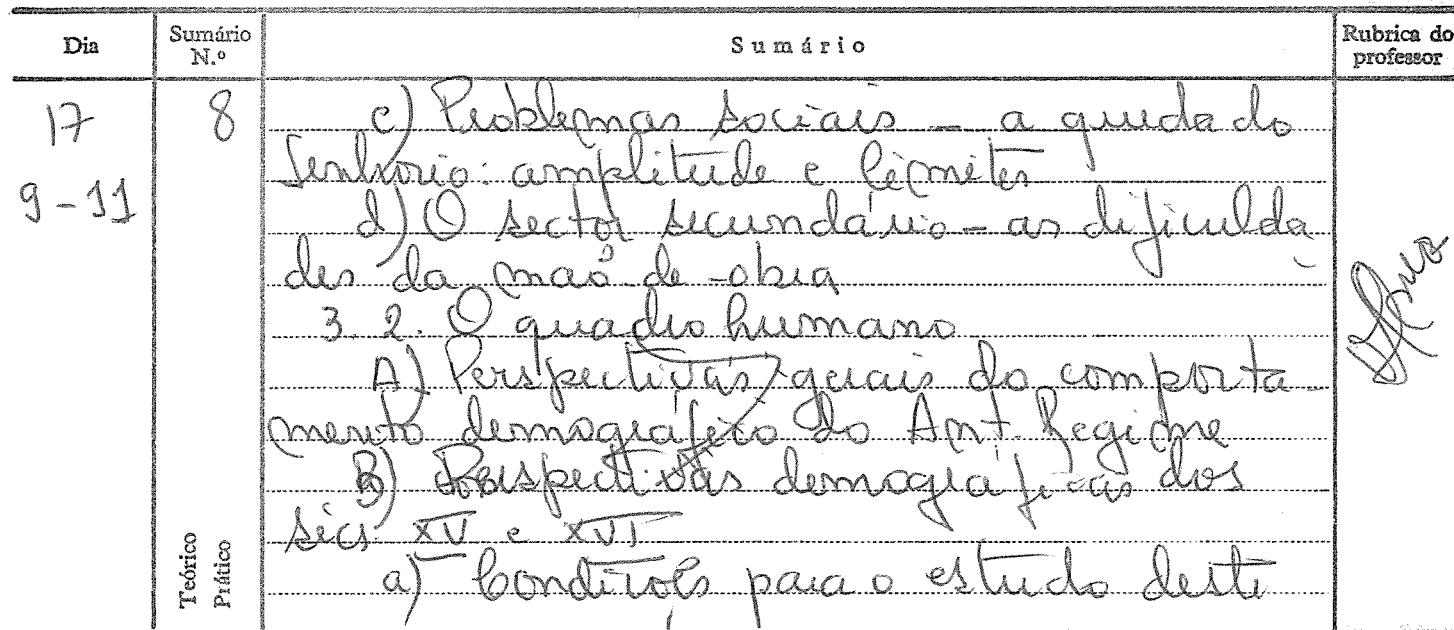 Dia Sumário N.º Sumário Rubrica do professor
17 8 c) Problemas sociais - a queda do
9-11 Senhorio: amplitude e limites
d) O sector secundário - as dificulda
des da mão-de-obra
3.2. O quadro humano
A) Perspectivas gerais do comporta-
mento demográfico do Ant. Regime
B) Perspectivas demográficas dos
sécs. XV e XVI
a) Condições para o estudo deste
Teórico
Prático